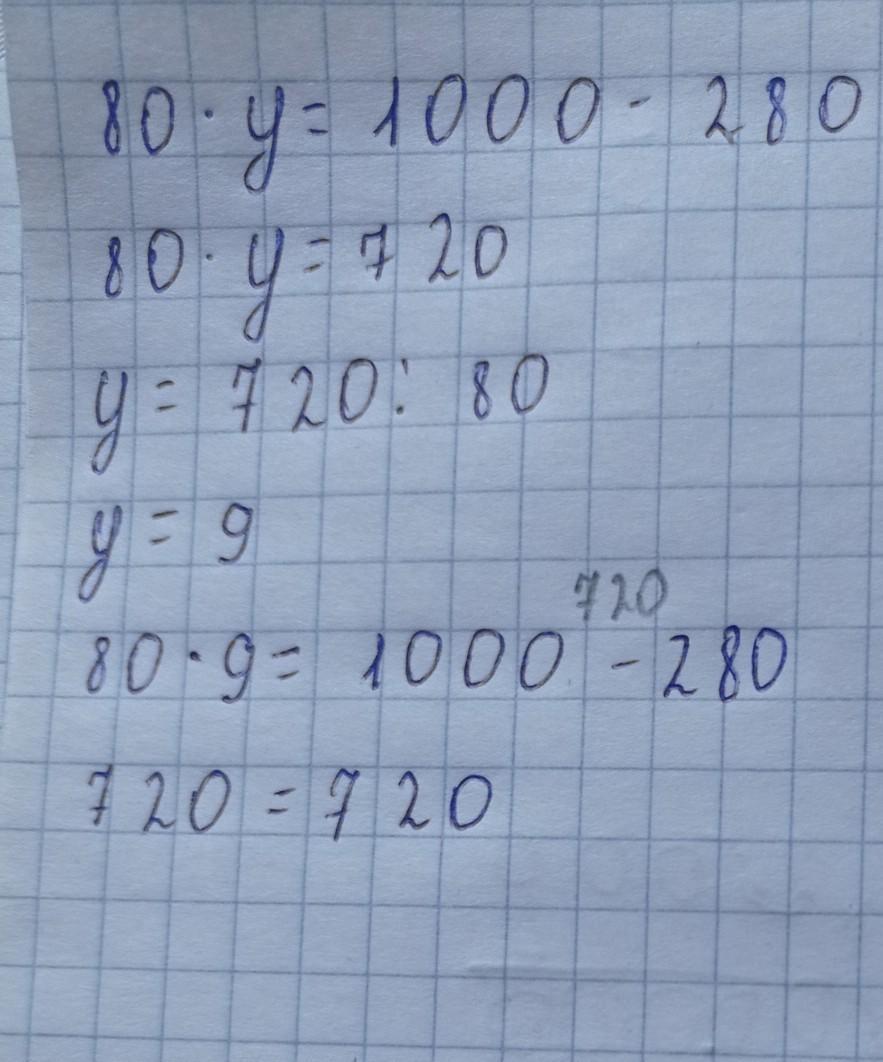 80 · y = 1000 - 280
80 · y = 720
y = 720 : 80
y = 9
720
80 · 9 = 1000 - 280
720 = 720